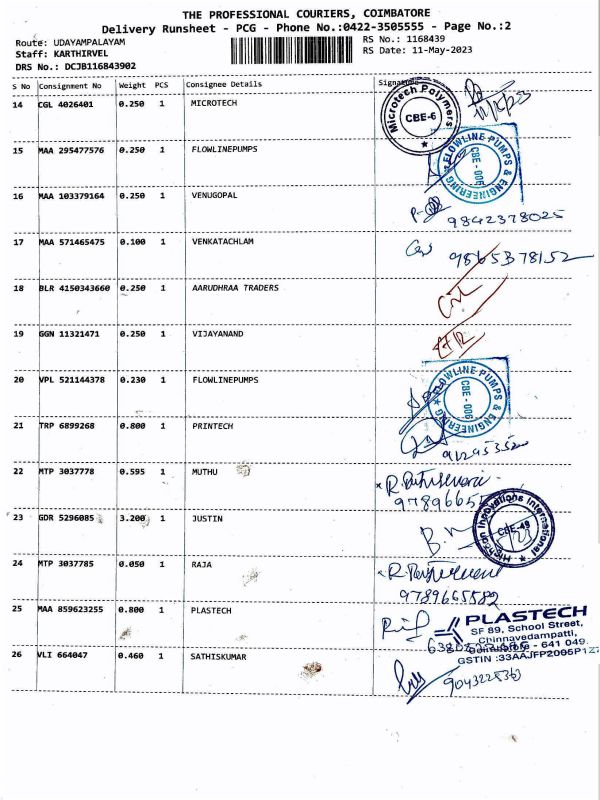 THE PROFESSIONAL COURIERS, COIMBATORE
Delivery Runsheet - PCG - Phone No.:0422-3505555 - Page No.:2
Route: UDAYAMPALAYAM
RS No.: 1168439
Staff: KARTHIRVEL
RS Date: 11-May-2023
DRS No.: DCJB116843902
S No Consignment No Weight PCS Consignee Details Signature
14 CGL 4026401 0.250 1 MICROTECH
Microtech Polymers CBE-6
15 MAA 295477576 0.250 1 FLOWLINEPUMPS
FLOWLINE PUMPS & ENGINEERING CBE - 006
16 MAA 103379164 0.250 1 VENUGOPAL
9842378025
17 MAA 571465475 0.100 1 VENKATACHLAM
9865378152
18 BLR 4150343660 0.250 1 AARUDHRAA TRADERS
19 GGN 11321471 0.250 1 VIJAYANAND
20 VPL 521144378 0.230 1 FLOWLINEPUMPS
FLOWLINE PUMPS & ENGINEERING CBE - 006
21 TRP 6899268 0.800 1 PRINTECH
22 MTP 3037778 0.595 1 MUTHU
23 GDR 5296085 3.200 1 JUSTIN
Innovations International CBE-49
24 MTP 3037785 0.050 1 RAJA
9789665582
25 MAA 859623255 0.800 1 PLASTECH
PLASTECH
SF 89, School Street,
Chinnavedampatti,
Coimbatore - 641 049.
GSTIN :33AAJFP2095P1Z
26 VLI 664047 0.460 1 SATHISKUMAR
9043228363